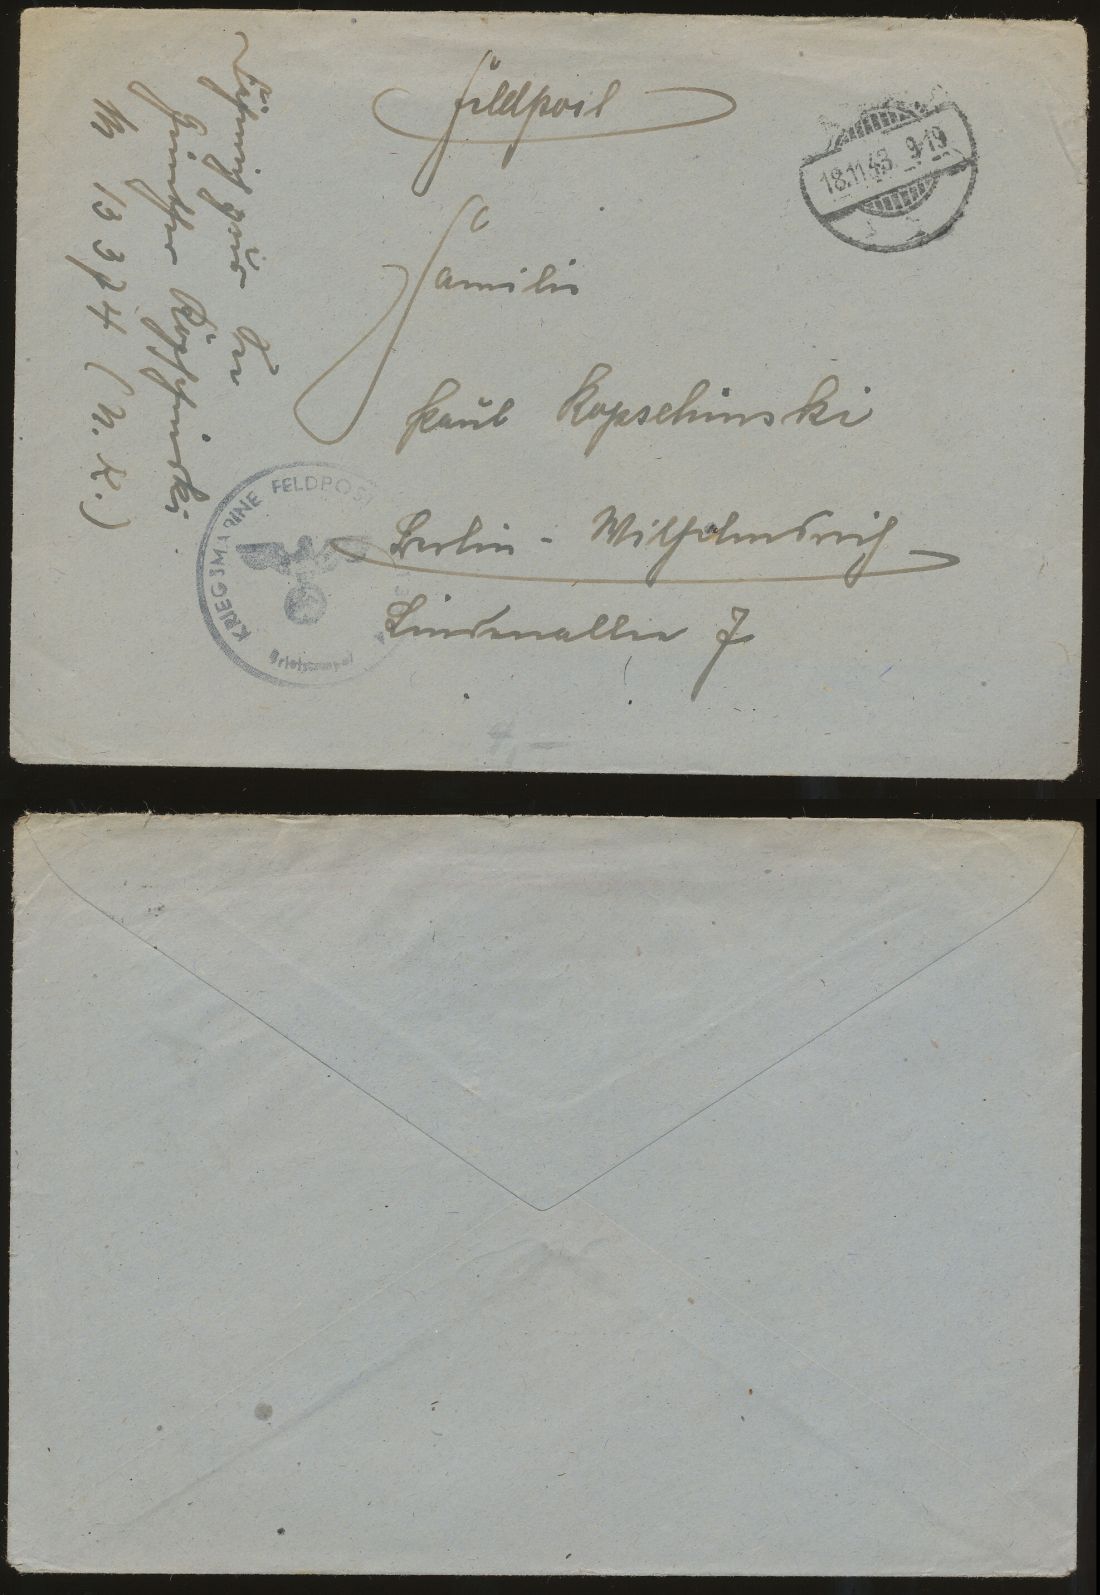 Feldpost
18.11.43. 9-19
Familie
Paul Kopschinski
Berlin - Wilhelmsruh
Lindenallee 7
KRIEGSMARINE FELDPOST
Briefstempel
Günther Kopschinski
M 13374 (N. K.)